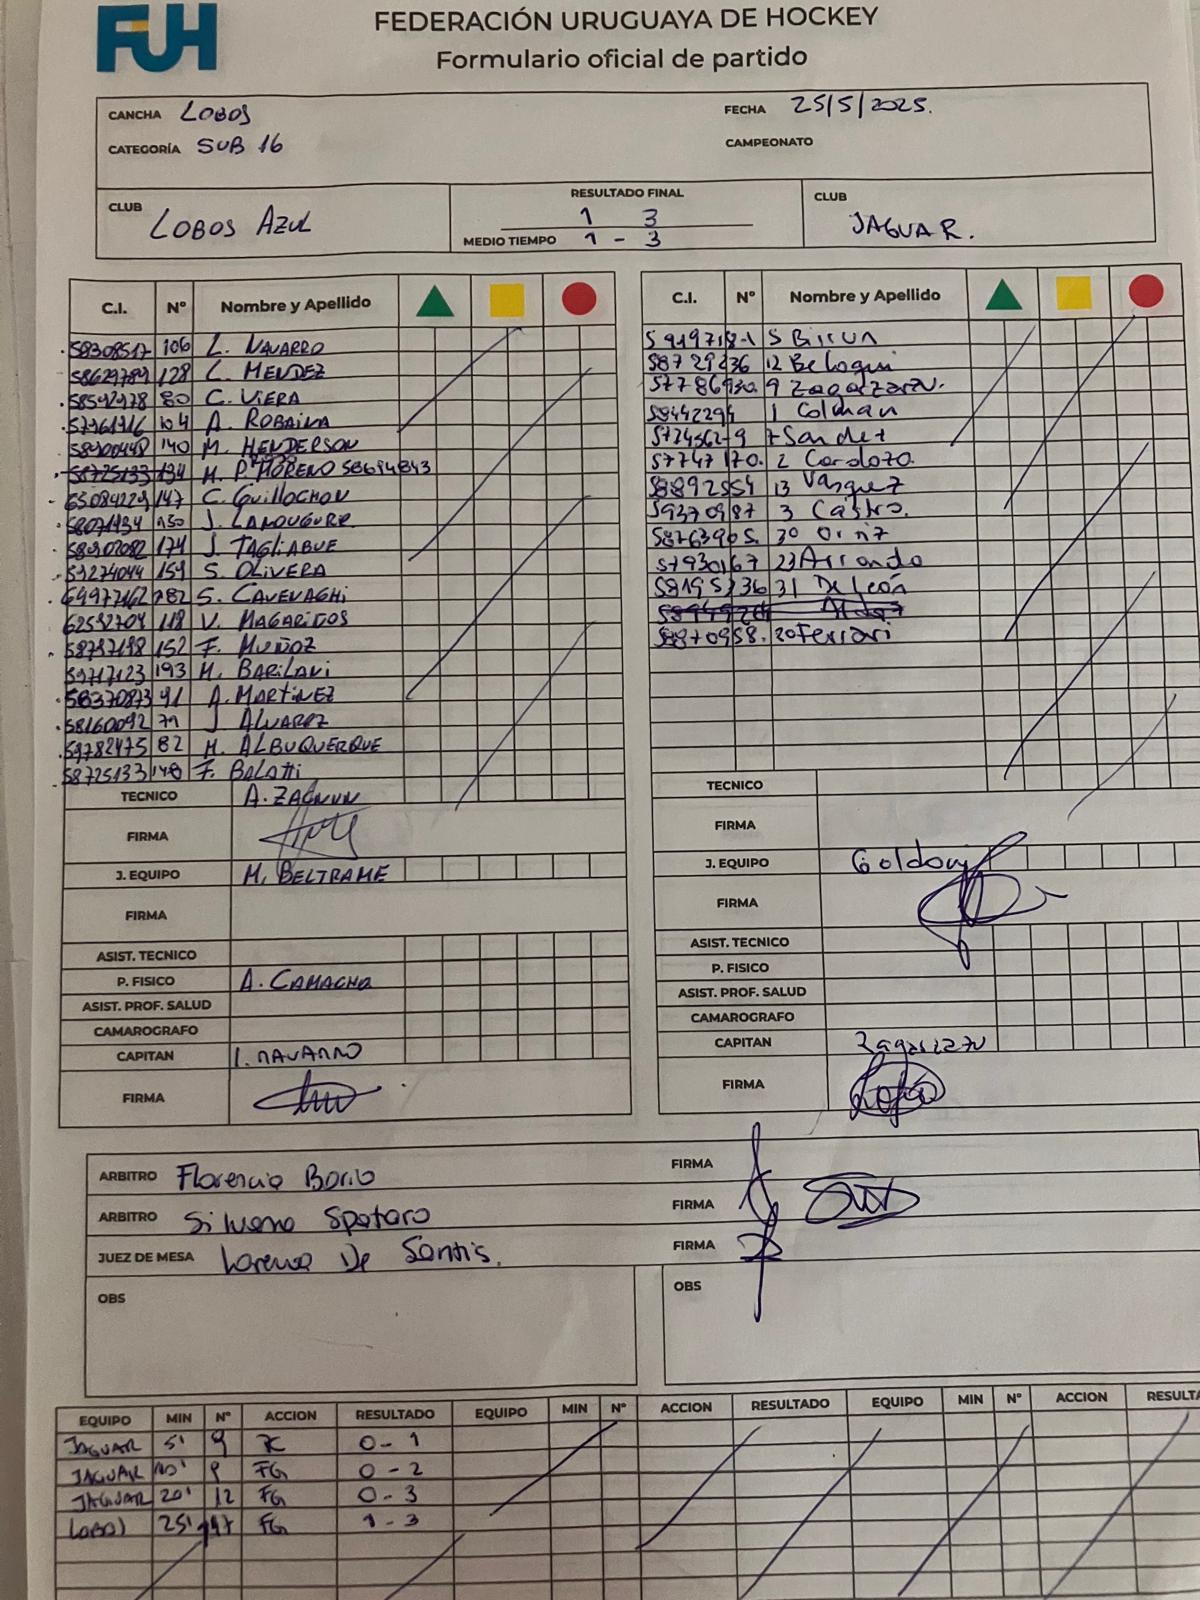 FUH
FEDERACIÓN URUGUAYA DE HOCKEY
Formulario oficial de partido
CANCHA LOBOS FECHA 25/5/2025.
CATEGORÍA SUB 16 CAMPEONATO
CLUB LOBOS AZUL RESULTADO FINAL 1 3 CLUB JAGUAR.
MEDIO TIEMPO 1 - 3
C.I. Nº Nombre y Apellido
58308517 106 L. NAVARRO
58629789 128 C. MENDEZ
58592978 80 C. VIERA
57961916 104 A. ROBAINA
58900448 140 M. HENDERSON
58725133 134 M. P. MORENO 58694843
65084229 147 C. GUILLOCHON
58071934 150
174 J. TAGLIABUE
59274044 159 S. OLIVERA
S. CAVENAGHI
62592704 118 V. MAGARIÑOS
58797198 152 F. MUÑOZ
59717123 193 M. BARILANI
58370873 91 A. MARTINEZ
58160092 79 J ALVAREZ
59782475 82 M. ALBUQUERQUE
58725133 148 F. BALATTI
TECNICO A. ZAGNUN
FIRMA
J. EQUIPO M. BELTRAME
FIRMA
ASIST. TECNICO
P. FISICO A. CAMACHO
ASIST. PROF. SALUD
CAMAROGRAFO
CAPITAN L. NAVARRO
FIRMA
C.I. Nº Nombre y Apellido
5919718-1 5 Birrun
58729236 12 Beloqui
57786930. 9 Zagarzazu.
58442294 1 Colman
5724562-9 7 Sandet
57747170. 2 Cardozo.
58892554 13 Vasquez
59370987 3 Castro.
5876390S. 30 Ortiz
57930167 23 Arrondo
58195736 31 De León
58870958. 20 Ferrari
TECNICO
FIRMA
J. EQUIPO Goldoni
FIRMA
ASIST. TECNICO
P. FISICO
ASIST. PROF. SALUD
CAMAROGRAFO
CAPITAN Zagarzazu
FIRMA
ARBITRO Florencia Borio FIRMA
ARBITRO Silvana Spataro FIRMA
JUEZ DE MESA Lorena De Santis. FIRMA
OBS OBS
EQUIPO MIN Nº ACCION RESULTADO EQUIPO MIN Nº ACCION RESULTADO EQUIPO MIN Nº ACCION RESULTA
JAGUAR 5' 9 0 - 1
JAGUAR 10' 9 FG 0 - 2
JAGUAR 20' 12 FG 0 - 3
LOBOS 25' 147 FG 1 - 3